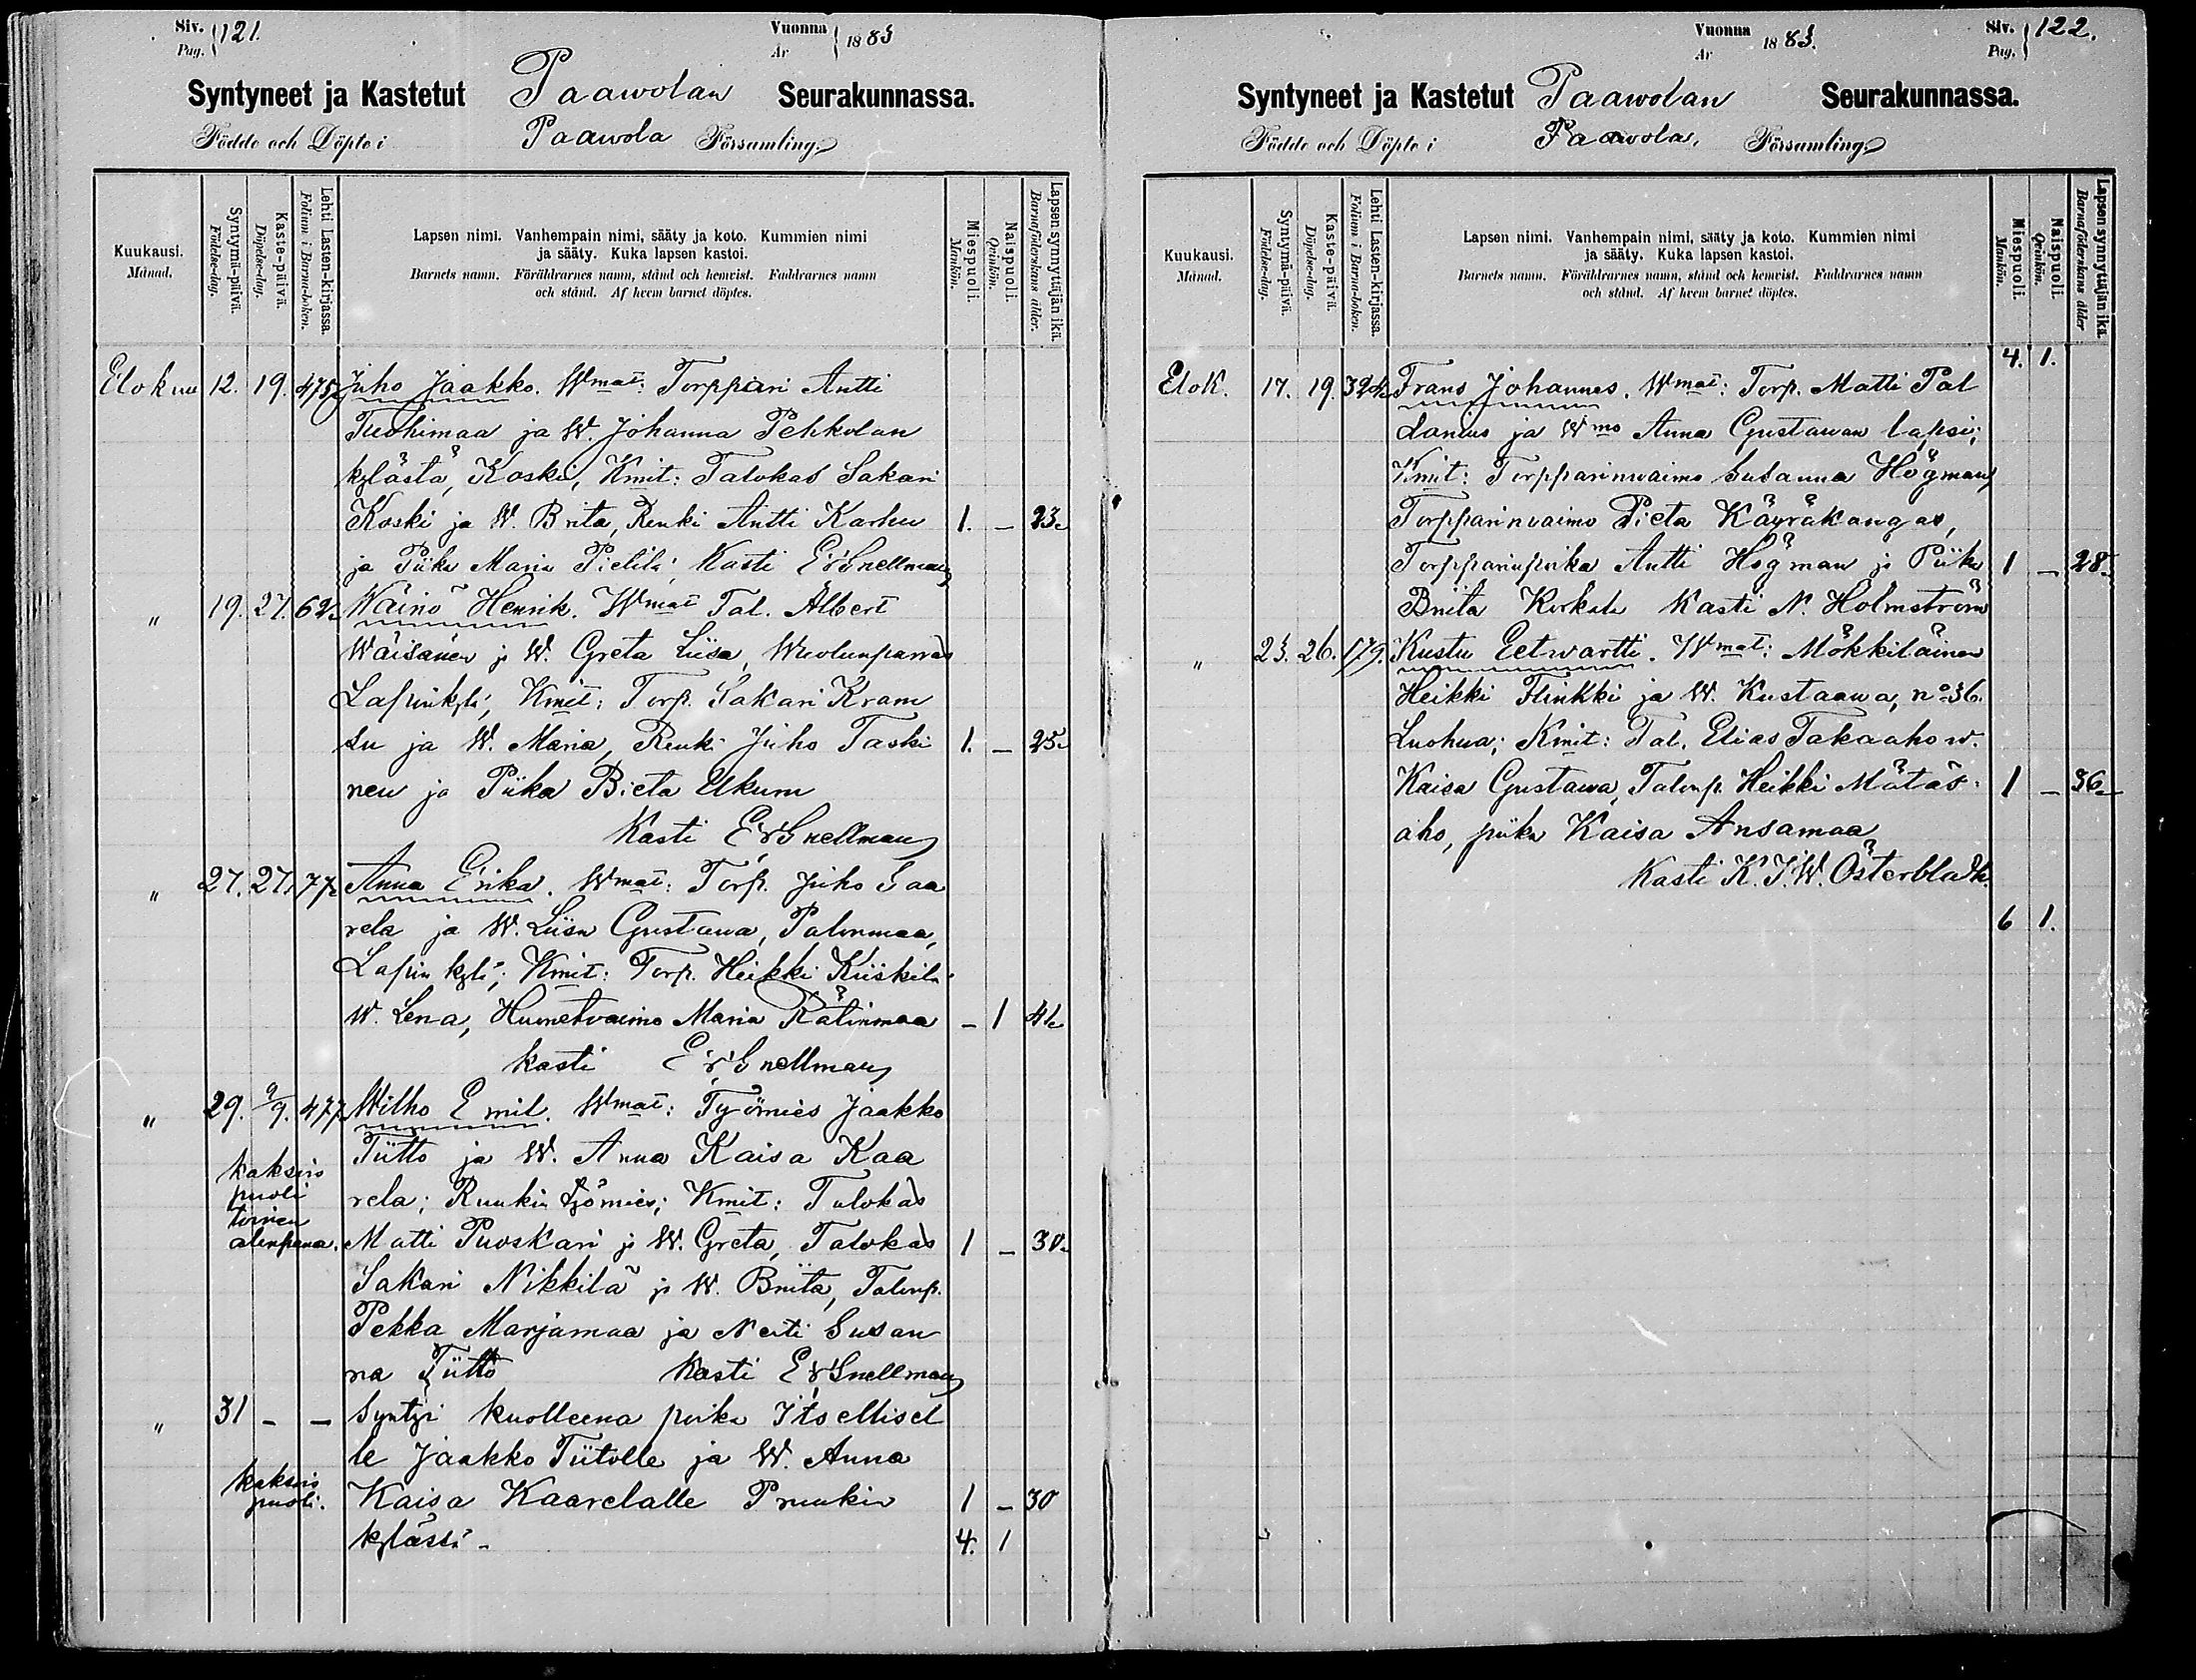 Siv. Pag. 121.
Vuonna År 1883
Syntyneet ja Kastetut Paawolan Seurakunnassa.
Födde och Döpte i Paawola Församling
Kuukausi. Månad.
Syntymä-päivä. Födelse-dag.
Kaste-päivä. Döpelse-dag.
Lehti Lasten-kirjassa. Folium i Barna-boken.
Lapsen nimi. Vanhempain nimi, sääty ja koto. Kummien nimi
ja sääty. Kuka lapsen kastoi.
Barnets namn. Föräldrarnes namn, stånd och hemvist. Faddrarnes namn
och stånd. Af hvem barnet döptes.
Miespuoli. Mankön.
Naispuoli. Qvinkön.
Lapsen synnyttäjän ikä. Barnaföderskans ålder.
Elokuu 12. 19. 475 Juho Jaakko. Wmat: Torppari Antti
Tuohimaa ja W. Johanna Pehkolan
kylästä, Koski, Kmit: Talokas Sakari
Koski ja W. Brita, Renki Antti Karhu 1. – 23
ja Piika Maria Pietilä; Kasti E V Snellman
" 19. 27. 62 Wäinö Henrik. Wmat Tal. Albert
Wäisänen ja W. Greta Liisa, Wuolunparras
Lapinkylä, Kmit: Torp. Sakari Kram
su ja W. Maria, Renki Juho Taski 1. – 25
nen ja Piika Brieta Ukura
Kasti E V Snellman
" 27. 27. 77 Anna Erika. Wmat: Torp. Juho Saa
rela ja W. Liisa Gustawa, Palonmaa,
Lapin kylä; Kmit: Torp. Heikki Kiiskilä
W. Lena, Huonetvaimo Maria Rätinmaa – 1 41
kasti E V Snellman
" 29. 9/9. 477 Wilho Emil. Wmat: Työmies Jaakko
Tiitto ja W. Anna Kaisa Kaa
kaksois
puoli
toinen
alempana.
rela; Ruukin työmies; Kmit: Talokas
Matti Puoskari ja W. Greta, Talokas 1 – 30
Sakari Nikkilä ja W. Briita, Talonp.
Pekka Marjamaa ja Neiti Susan
na Tiitto Kasti E V Snellman
" 31 – – Syntyi kuolleena poika Itsellisel
le Jaakko Tiitolle ja W. Anna
kaksois
puoli.
Kaisa Kaarelalle Ruukin 1 – 30
kylässä. 4. 1
Vuonna År 1883.
Siv. Pag. 122.
Syntyneet ja Kastetut Paawolan Seurakunnassa.
Födde och Döpte i Paawola, Församling
Kuukausi. Månad.
Syntymä-päivä. Födelse-dag.
Kaste-päivä. Döpelse-dag.
Lehti Lasten-kirjassa. Folium i Barna-boken.
Lapsen nimi. Vanhempain nimi, sääty ja koto. Kummien nimi
ja sääty. Kuka lapsen kastoi.
Barnets namn. Föräldrarnes namn, stånd och hemvist. Faddrarnes namn
och stånd. Af hvem barnet döptes.
Miespuoli. Mankön.
Naispuoli. Qvinkön.
Lapsen synnyttäjän ikä. Barnaföderskans ålder
4. 1.
Elok. 17. 19. 324 Frans Johannes. Wmat: Torp. Matti Pal
danius ja Wmo Anna Gustawan lapsi;
Kmit: Torpparinwaimo Susanna Högman,
Torpparinvaimo Pieta Käyräkangas,
Torpparinpoika Antti Högman ja Piika 1 – 28.
Briita Korkala Kasti N. Holmström
" 23. 26. 179. Kustu Eetwartti. Wmat: Mökkiläinen
Heikki Flinkki ja W. Kustaawa, no 36.
Luohua; Kmit: Tal. Elias Takaaho w.
Kaisa Gustawa, Talonp. Heikki Mätäs 1 – 36
aho, piika Kaisa Ansamaa
Kasti K.J.W. Österbladh.
6 1.